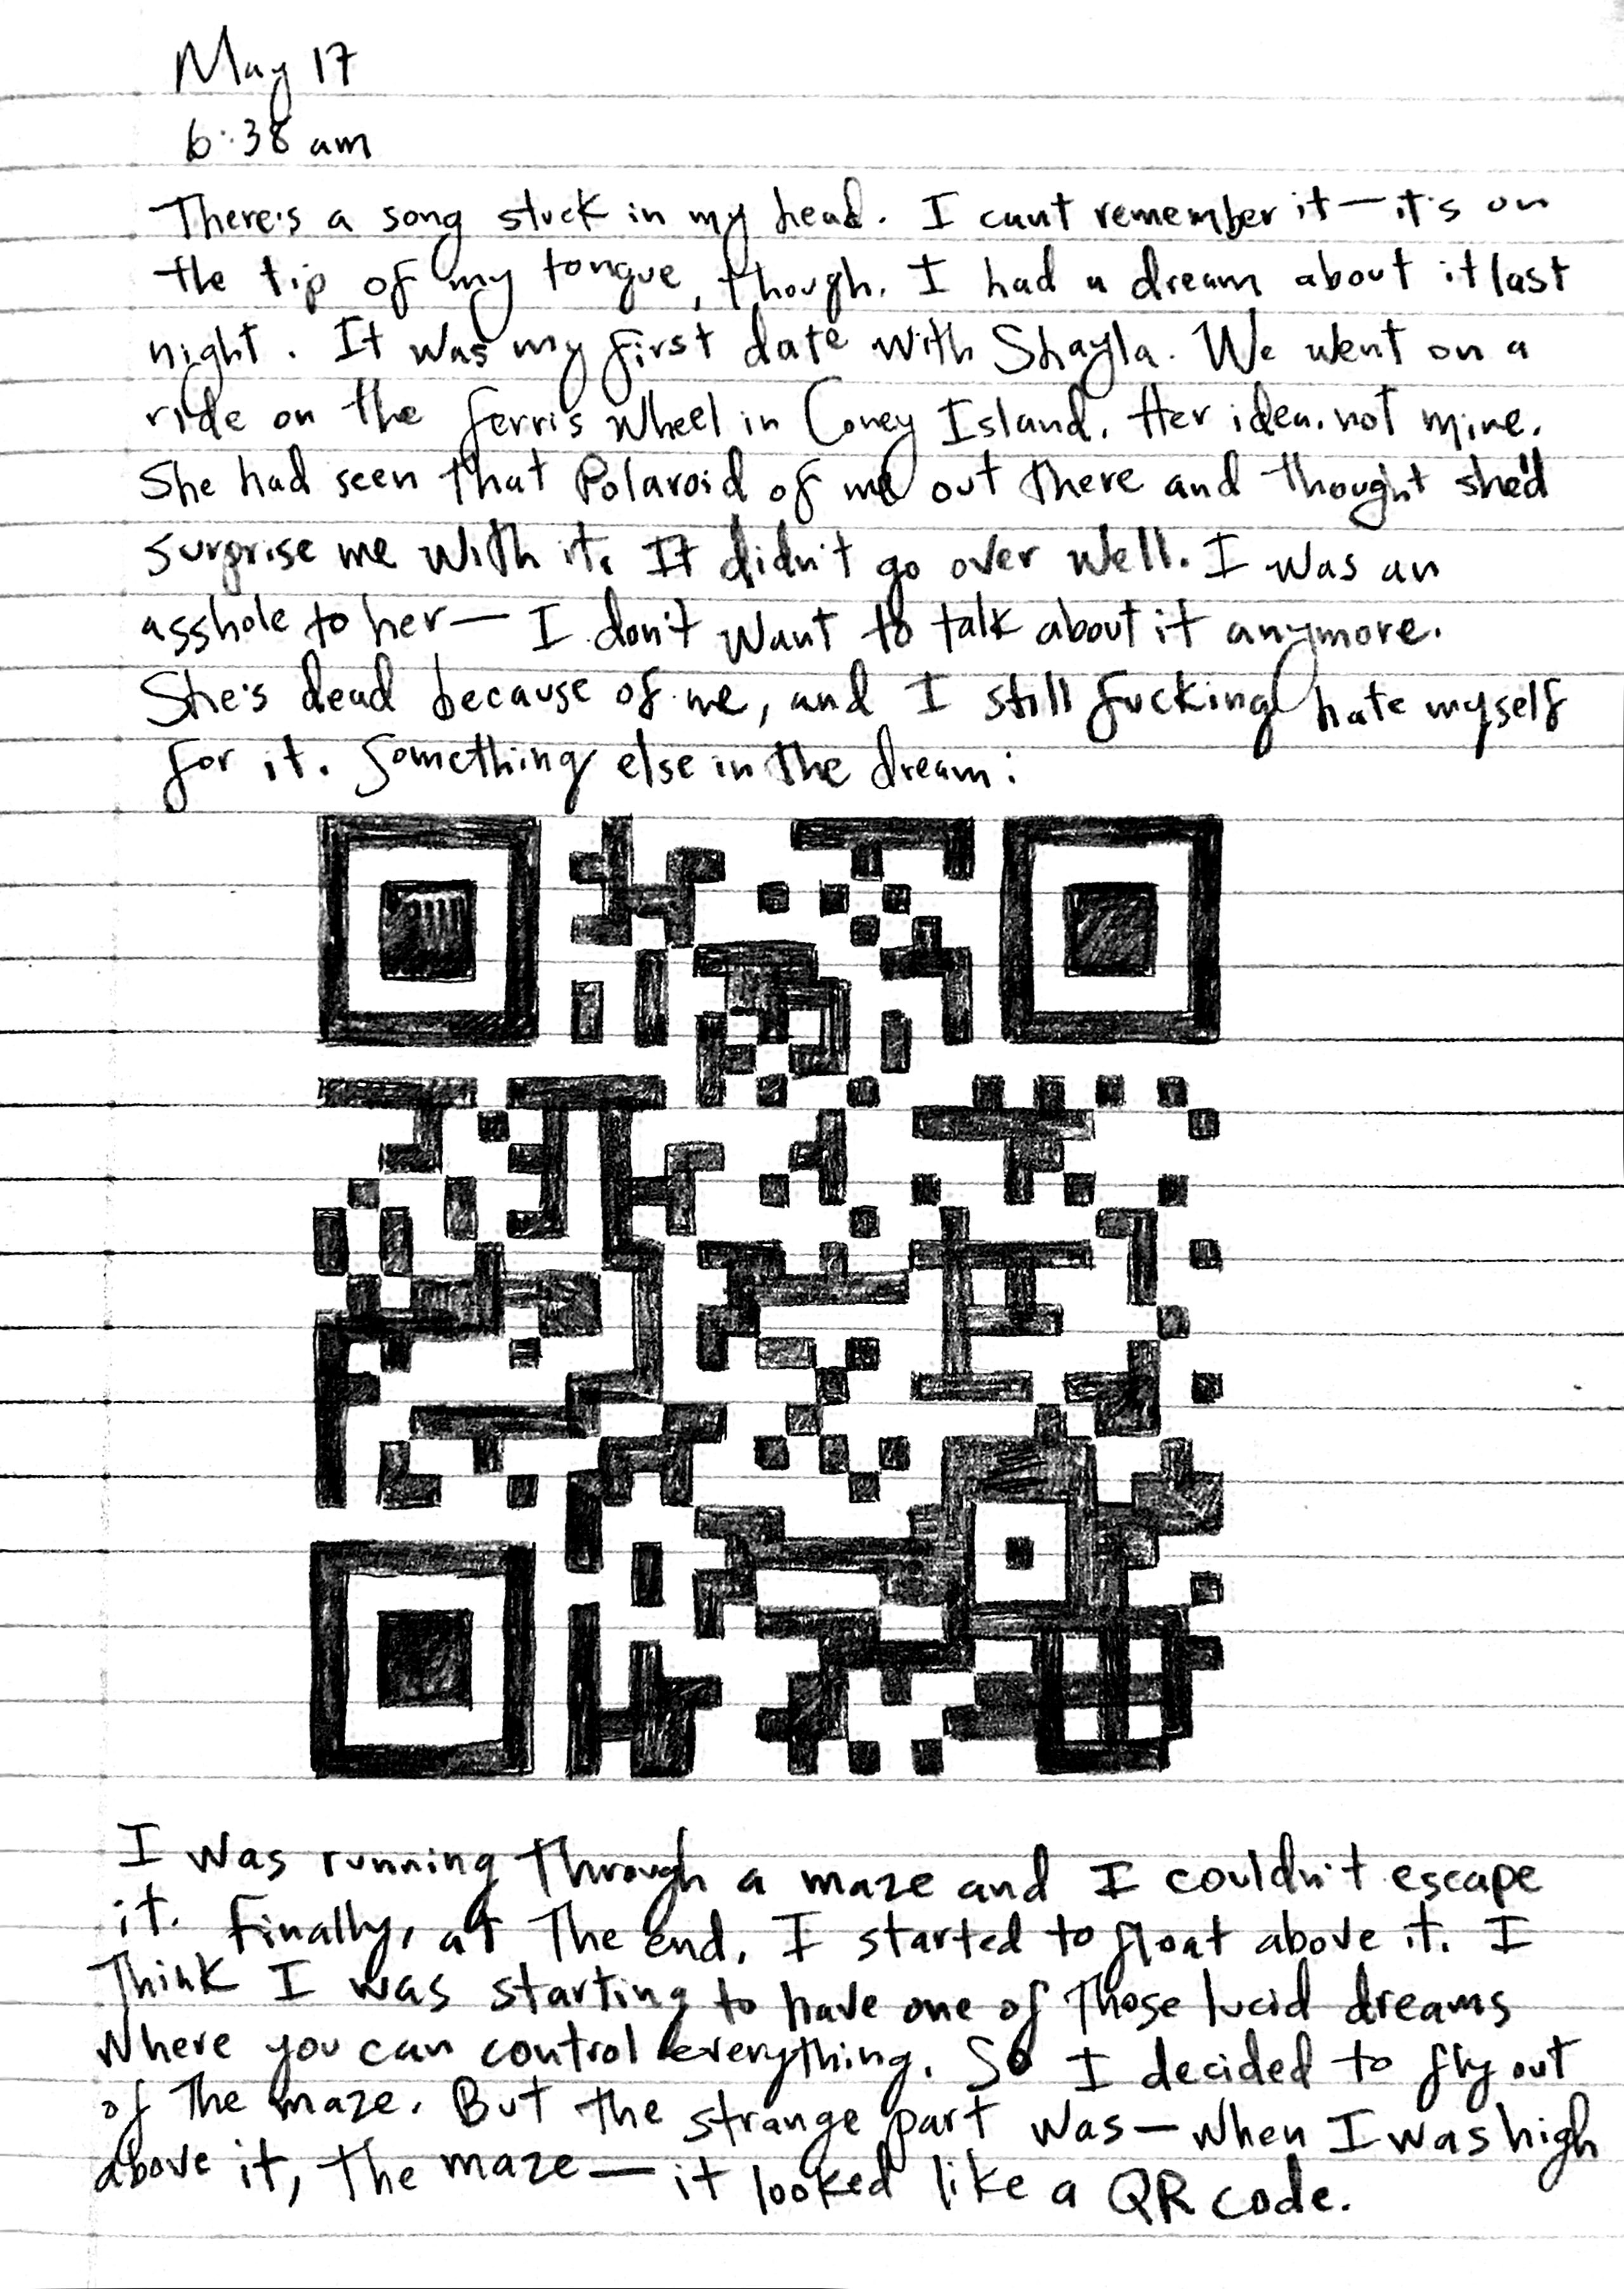 May 17
6:38 am
There's a song stuck in my head. I can't remember it—it's on
the tip of my tongue, though. I had a dream about it last
night. It was my first date with Shayla. We went on a
ride on the ferris wheel in Coney Island. Her idea, not mine.
She had seen that Polaroid of me out there and thought she'd
surprise me with it. It didn't go over well. I was an
asshole to her— I don't want to talk about it anymore.
She's dead because of me, and I still fucking hate myself
for it. Something else in the dream:
I was running through a maze and I couldn't escape
it. Finally, at the end, I started to float above it. I
think I was starting to have one of those lucid dreams
where you can control everything. So I decided to fly out
of the maze. But the strange part was—when I was high
above it, the maze—it looked like a QR code.